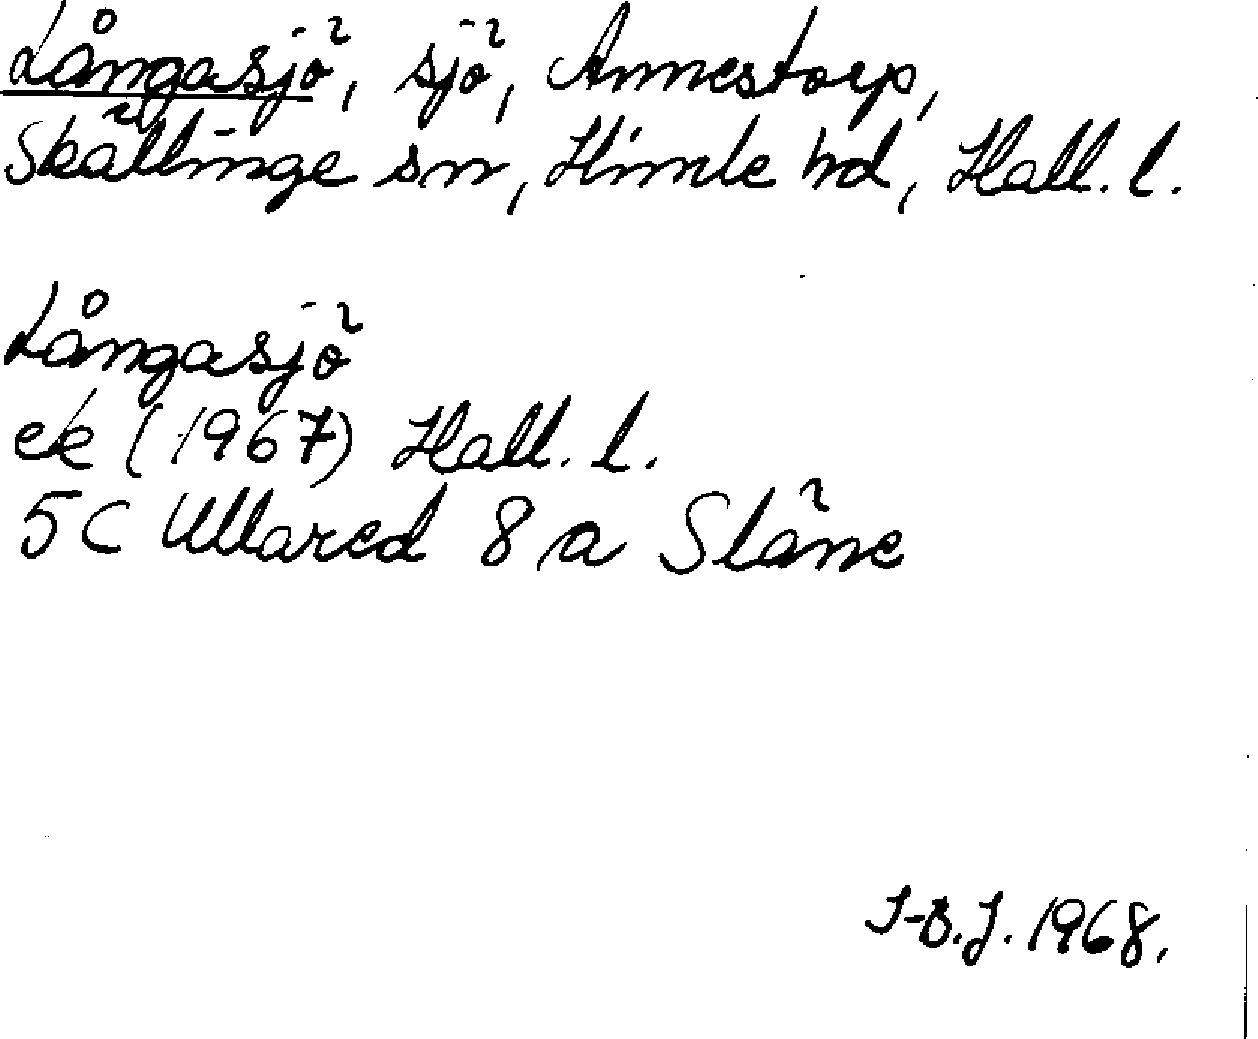 Långasjö, sjö, Annestorp,
Skällinge sn, Himle hd, Hall. l.
Långasjö
ek (1967) Hall. l.
5C Ullared 8 a Släne
I-B.J. 1968.